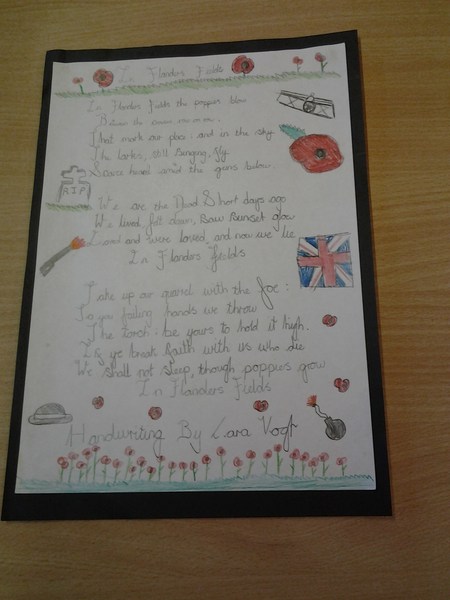 In Flanders Fields
In Flanders Fields the poppies blow
Between the crosses row on row,
That mark our place: and in the sky
The larks, still singing, fly
Scarce heard amid the guns below
RIP
We are the Dead Short days ago
We lived felt dawn, Saw Sunset glow
Loved and were loved, and now we lie
In Flanders fields
Take up our quarrel with the foe:
To you failing hands we throw
The torch: be yours to hold it high.
If ye break faith with us who die
We shall not sleep, though poppies grow
In Flanders Fields
Handwriting By Lara Vogt